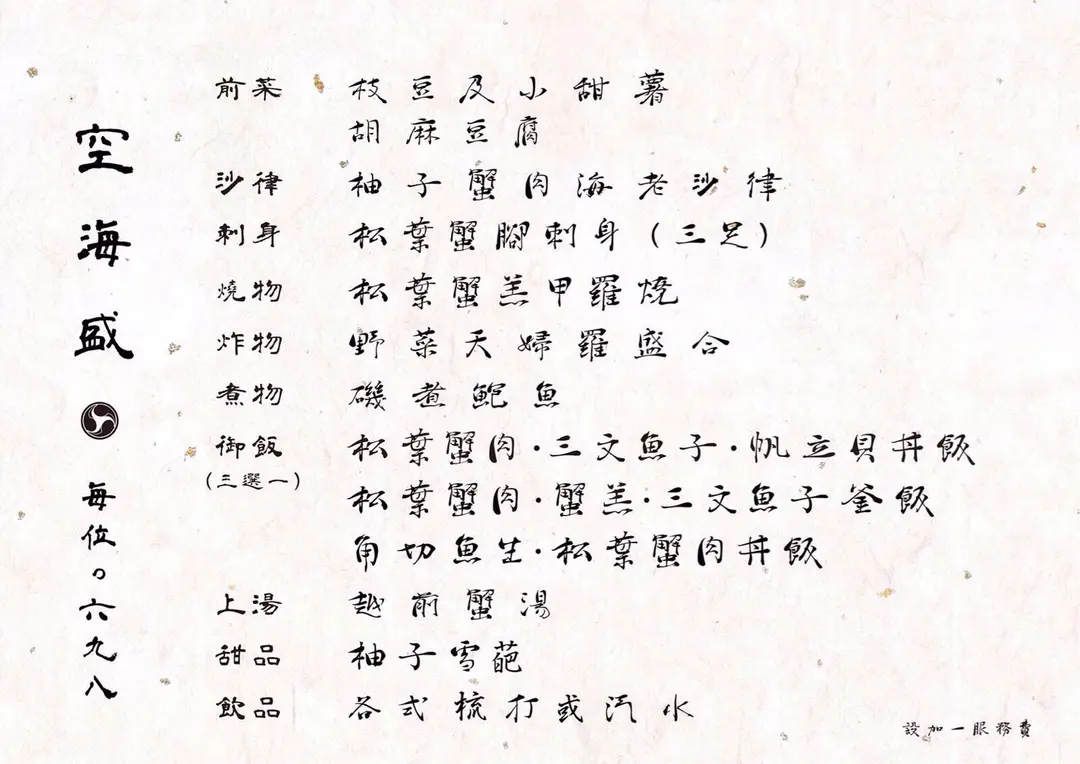 空海盛
每位。六九八
前菜 枝豆及小甜薯
胡麻豆腐
沙律 柚子蟹肉海老沙律
刺身 松葉蟹腳刺身(三足)
燒物 松葉蟹羔甲羅燒
炸物 野菜天婦羅盛合
煮物 磯煮鮑魚
御飯 松葉蟹肉·三文魚子·帆立貝丼飯
(三選一)
松葉蟹肉·蟹羔·三文魚子釜飯
角切魚生·松葉蟹肉丼飯
上湯 越前蟹湯
甜品 柚子雪葩
飲品 各式梳打或汽水
設加一服務費